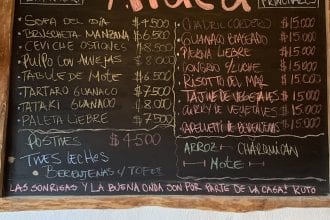 PRINCIPALES
SOPA DEL DÍA $4.500
BRUSCHETA MANZANA $6.500
CEVICHE OSTIONES $8.500
PULPO CON ALMEJAS $8.000
TABULE DE MOTE $6.500
TARTARO GUANACO $7.500
TATAKI GUANACO $8.000
PALETA LIEBRE $7.500
POSTRES $4.500
TRES LECHES
BERENJENAS C/TOFEE
CHARQUI CORDERO $15.000
GUANACO BRASEADO $15.000
PIERNA LIEBRE $15.000
CONGRIO S/LUCHE $15.000
RISOTTO DEL MAR $15.000
TAJINE DE VEGETALES $15.000
CURRY DE VEGETALES $15.000
CAPELETTI DE BERENJENAS $15.000
ARROZ CHARQUICAN
MOTE
LAS SONRISAS Y LA BUENA ONDA SON POR PARTE DE LA CASA! KUTO